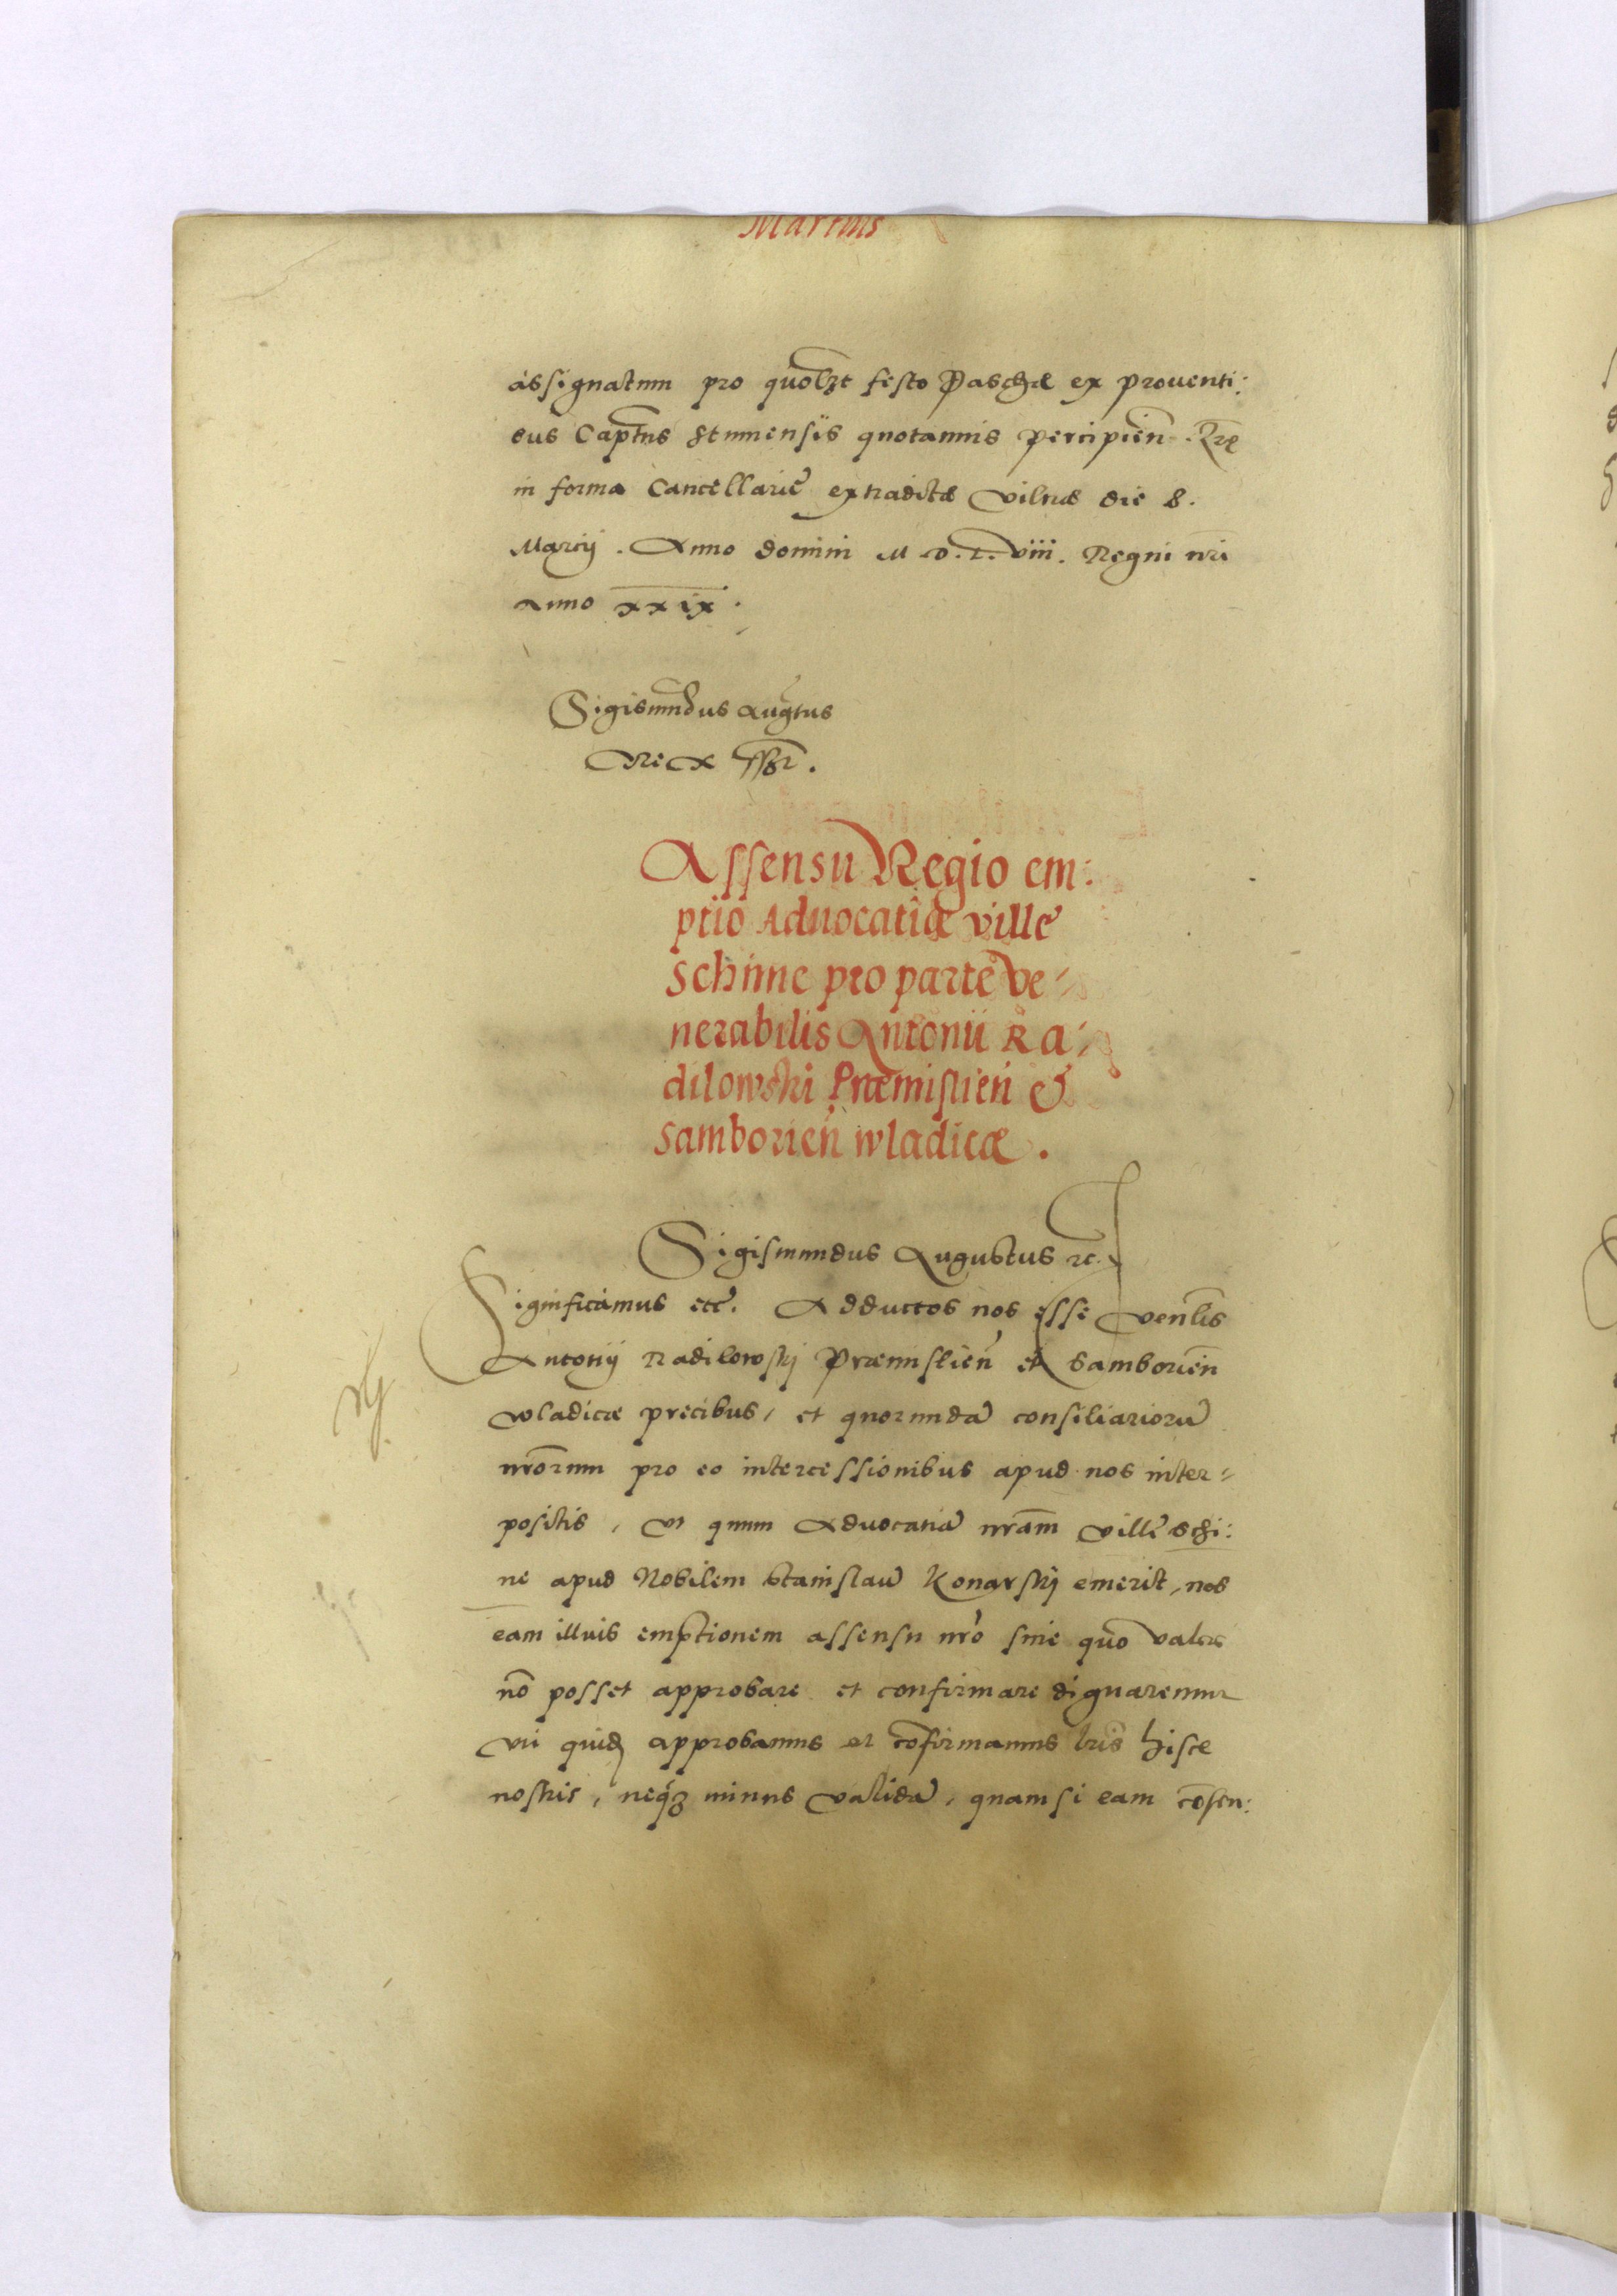 Martius
assignatum pro quolꝫt festo Paschæ ex prouenti:
bus Captus Stumensis quotannis percipien̄. Lr̄ę
in forma Cancellarie extraditæ Vilnæ die 8.
Marcij. Anno domini M D. L. viii. Regni nr̄i
anno xxix.
Sigismūdus Augtus
Rex ssbr.
Assensu Regio em:
ptio Aduocatiæ ville
Schinne pro parte Ve-
nerabilis Antonii Ra,
dilowski Præmislien̄ &
Samborien̄ wladicæ.
Sigismundus Augustus ꝛc.
Significamus etc. Adductos nos esse Venlis
Antonij Radilowskj Præmislien̄ et Samborien̄
wladicæ precibus, et quorundā consiliariorū
nr̄orum pro eo intercessionibus apud nos inter-
positis, Vt quum Aduocatiā nr̄am Ville Schi:
ne apud Nobilem Stanislaū Konarskj emerit, nos
eam illius emptionem assensu nr̄o sine quo Valere
nō posset approbare et confirmare dignaremur
Vti quidē approbamus et cōfirmamus lr̄is hisce
nostris, neqꝫ minus Validā, quam si eam cōsen: